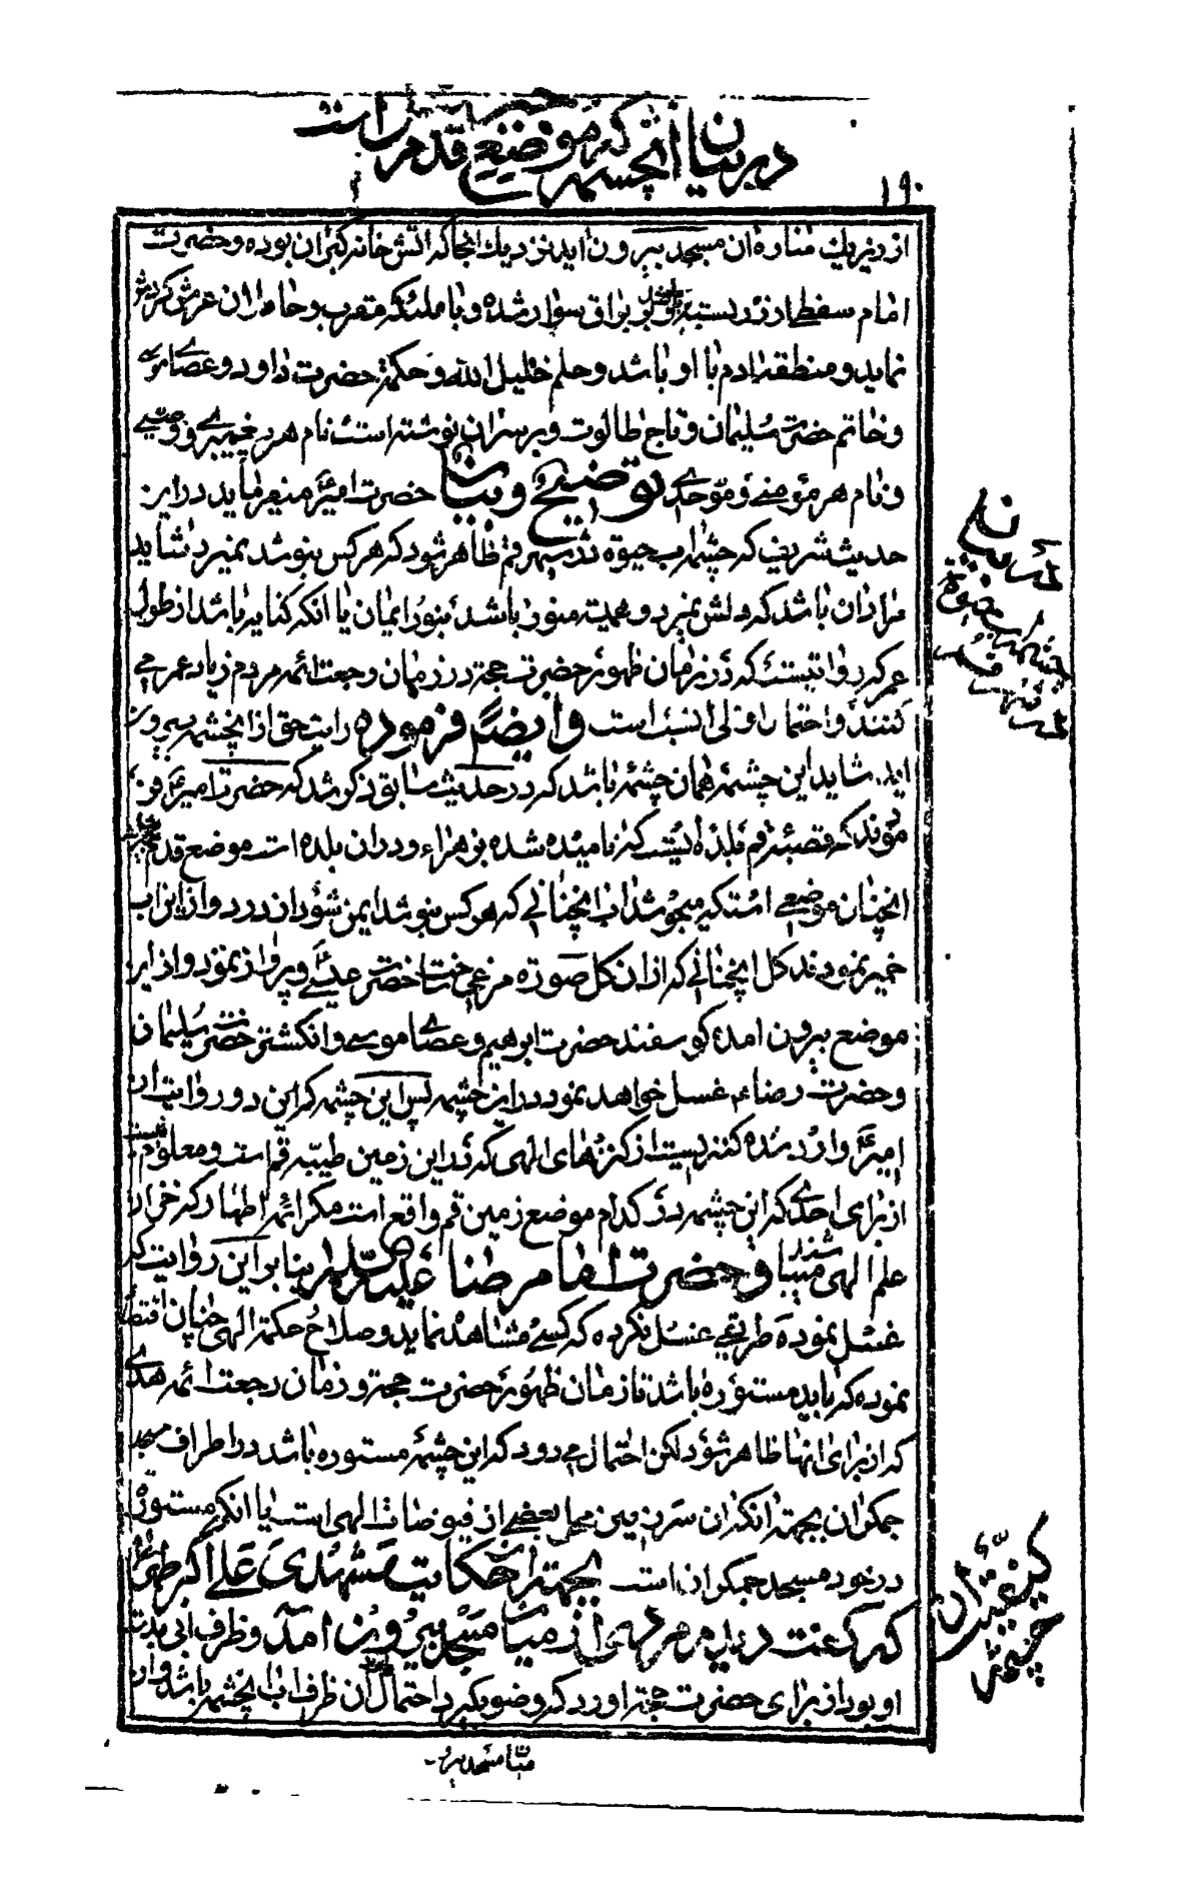 در بیان انچشمه که موضع قدم جبرئیل است
۱۹۰
از زیر یک مناره ان مسجد بیرون اید نزدیک انجا که اتش خانه گبران بوده و حضرت
امام سفطها از زر بسته بر براق سوار شده و با ملئکه مقرب و حاملان عرش گردش
نماید و منطقه ادم با او باشد و حلم خلیل الله و حکمة حضرت داود و عصای موسی
و خاتم حضرت سلیمان و تاج طالوت و بر سر ان نوشته است نام هر پیغمبری و وصیی
و نام هر مؤمنی و موحدی توضیح و بیان حضرت امیر میفرماید در این
حدیث شریف که چشمه اب حیوة در شهر قم ظاهر شود که هر کس بنوشد نمیرد شاید
مراد ان باشد که دلش نمیرد و همیشه منور باشد بنور ایمان یا انکه کنایه باشد از طول
عمر که روایتیست که در زمان ظهور حضرت حجة در زمان رجعت ائمه مردم زیاد عمر می
کنند و احتمال اولی انسب است و ایضا فرموده رایت حق از انچشمه بیرون
اید شاید این چشمه همان چشمه باشد که در حدیث سابق ذکر شد که حضرت امیر فر
مودند که قصبه قم بلده ایست که نامیده شده بزهراء و در ان بلده است موضع قدم جبرئیل
انچنان موضعی استکه میجوشد اب انچنانی که هر کس بنوشد ایمن شود از درد و از این اب
خمیر نمودند گل انچنانی که از ان گل صورة مرغی ساخت حضرت عیسی و پرواز نمود و از این
موضع بیرون امده گوسفند حضرت ابرهیم و عصای موسی و انگشتر حضرت سلیمان
و حضرت رضاء غسل خواهد نمود در این چشمه پس این چشمه که این دو روایت از
امیر وارد شده گنجیست از گنزهای الهی که در این زمین طیبه قم است و معلوم نیست
از برای احدی که این چشمه در کدام موضع زمین قم واقع است مگر ائمه اطهار که خزان
علم الهی میباشند و حضرت امام رضا علیه السلام بنا بر این روایت که
غسل نموده طریقی غسل نکرده که کسی مشاهده نماید و صلاح حکمة الهی چنان اقتضا
نموده که باید مستوره باشد تا زمان ظهور حضرت حجة و زمان رجعت ائمه هدی
که از برای انها ظاهر شود لکن احتمال میرود که این چشمه مستوره باشد در اطراف مسجد
جمکران بجهة انکه ان سرزمین محل بعضی از فیوضات الهی است یا انکه مستوره
در خود مسجد جمکران است بجهة ان حکایت مشهدی علی اکبر طهرانی
که گفت دنبال مردی از میان مسجد بیرون امد و ظرف ابی بدست
او بود از برای حضرت حجة اورد که وضو بگیرد احتمال ان ظرف اب انچشمه باشد و از
میان مسجد بیر
در بیان
چشمه حیوة
در شهر قم
کیفیت ان
چشمه